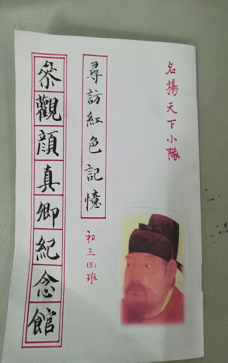 名揚天下小隊
尋訪紅色記憶
初三(5)班
叅觀顔真卿紀念館